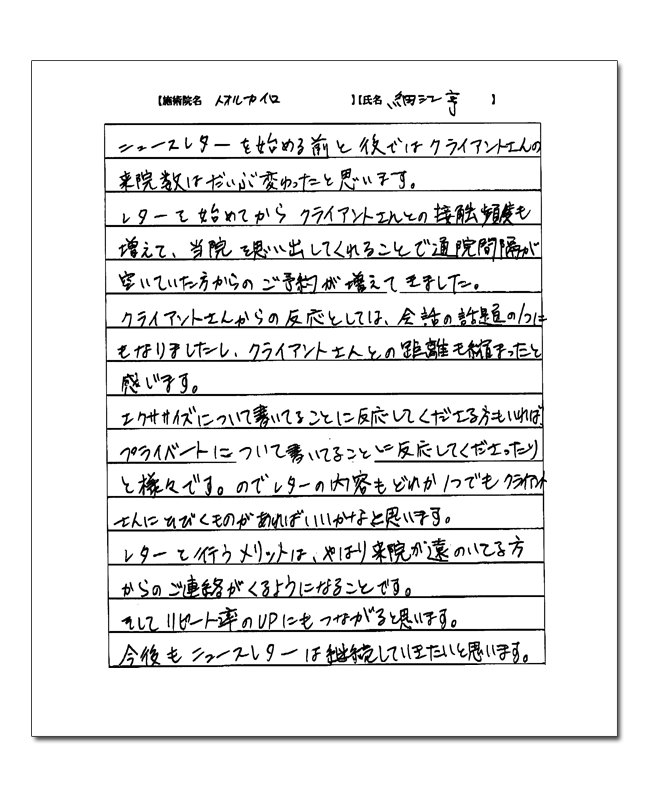 【施術院名 イオルカイロ 】【氏名 細江 亨 】
ニュースレターを始める前と後ではクライアントさんの
来院数はだいぶ変わったと思います。
レターを始めてからクライアントさんとの接触頻度も
増えて、当院を思い出してくれることで通院間隔が
空いていた方からのご予約が増えてきました。
クライアントさんからの反応としては、会話の話題の1つに
もなりましたし、クライアントさんとの距離も縮まったと
感じます。
エクササイズについて書いてることに反応してくださる方もいれば、
プライベートについて書いてることに反応してくださったり
と様々です。のでレターの内容もどれか1つでもクライアント
さんにひびくものがあればいいかなと思います。
レターを行うメリットは、やはり来院が遠のいてる方
からのご連絡がくるようになることです。
そしてリピート率のUPにもつながると思います。
今後もニュースレターは継続していきたいと思います。